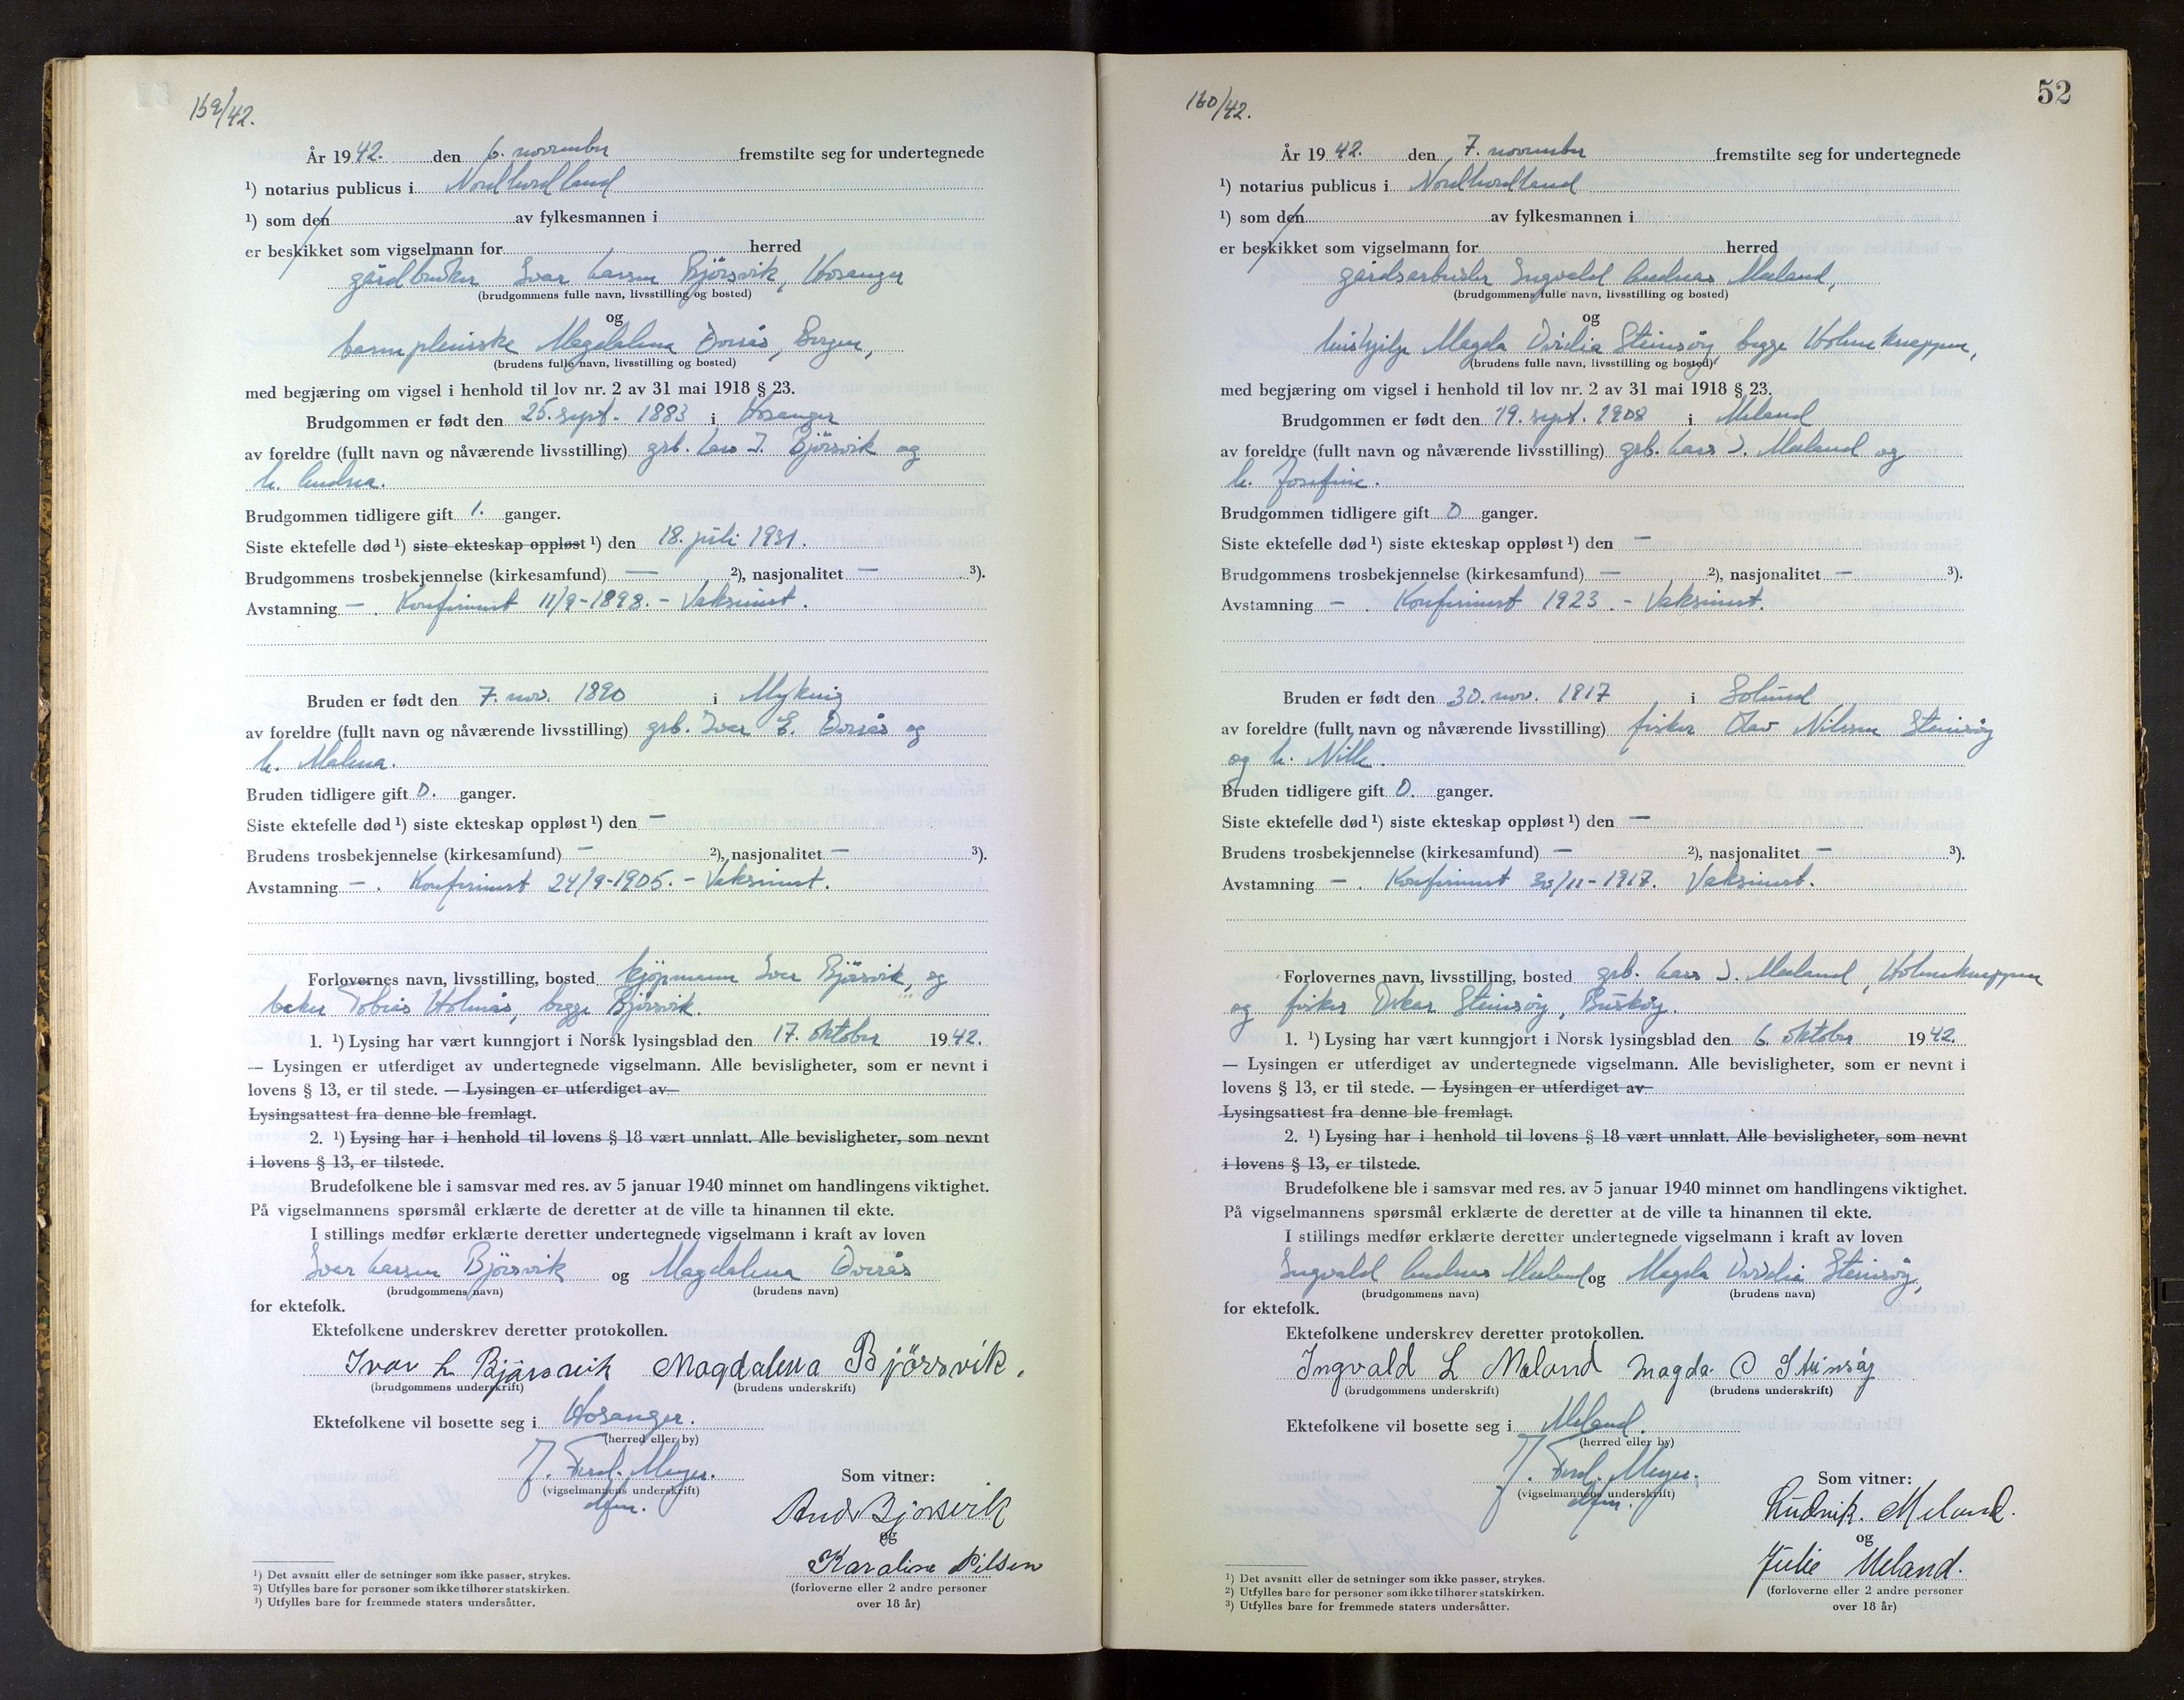 159/42.
År 1942. den 6. november fremstilte seg for undertegnede
¹) notarius publicus i Nordhordland
¹) som den av fylkesmannen i
er beskikket som vigselmann for herred
gårdbruker Ivar Larsen Bjørsvik, Hosanger
(brudgommens fulle navn, livsstilling og bosted)
og
barnepleierske Magdalena Dorrås, Bergen,
(brudens fulle navn, livsstilling og bosted)
med begjæring om vigsel i henhold til lov nr. 2 av 31 mai 1918 § 23.
Brudgommen er født den 25. sept. 1883 i Hosanger
av foreldre (fullt navn og nåværende livsstilling) grb. Lars I. Bjørsvik og
h. Andrea.
Brudgommen tidligere gift 1. ganger.
Siste ektefelle død ¹) siste ekteskap oppløst ¹) den 18. juli 1931.
Brudgommens trosbekjennelse (kirkesamfund) — ²), nasjonalitet — ³).
Avstamning — . Konfirmert 11/9-1898. - Vaksinert.
Bruden er født den 7. nov. 1890 i Myking
av foreldre (fullt navn og nåværende livsstilling) grb. Ivar E. Dorrås og
h. Malena.
Bruden tidligere gift 0. ganger.
Siste ektefelle død ¹) siste ekteskap oppløst ¹) den —
Brudens trosbekjennelse (kirkesamfund) — ²), nasjonalitet — ³).
Avstamning — . Konfirmert 24/9-1905. - Vaksinert.
Forlovernes navn, livsstilling, bosted kjøpmann Ivar Bjørsvik, og
baker Tobias Holmås, begge Bjørsvik.
1. ¹) Lysing har vært kunngjort i Norsk lysingsblad den 17. oktober 1942.
— Lysingen er utferdiget av undertegnede vigselmann. Alle bevisligheter, som er nevnt i
lovens § 13, er til stede. — Lysingen er utferdiget av
Lysingsattest fra denne ble fremlagt.
2. ¹) Lysing har i henhold til lovens § 18 vært unnlatt. Alle bevisligheter, som nevnt
i lovens § 13, er tilstede.
Brudefolkene ble i samsvar med res. av 5 januar 1940 minnet om handlingens viktighet.
På vigselmannens spørsmål erklærte de deretter at de ville ta hinannen til ekte.
I stillings medfør erklærte deretter undertegnede vigselmann i kraft av loven
Ivar Larsen Bjørsvik og Magdalena Dorrås
(brudgommens navn) (brudens navn)
for ektefolk.
Ektefolkene underskrev deretter protokollen.
Ivar L Bjørsvik Magdalena Bjørsvik.
(brudgommens underskrift) (brudens underskrift)
Ektefolkene vil bosette seg i Hosanger.
(herred eller by)
J. Ferd. Meyer.
(vigselmannens underskrift)
dfm.
Som vitner:
And Bjørsvik
og
Karoline Nilsen
(forloverne eller 2 andre personer
over 18 år)
¹) Det avsnitt eller de setninger som ikke passer, strykes.
²) Utfylles bare for personer som ikke tilhører statskirken.
³) Utfylles bare for fremmede staters undersåtter.
52
160/42.
År 1942. den 7. november fremstilte seg for undertegnede
¹) notarius publicus i Nordhordland
¹) som den av fylkesmannen i
er beskikket som vigselmann for herred
gårdsarbeider Ingvald Andreas Meland,
(brudgommens fulle navn, livsstilling og bosted)
og
hushjelp Magda Ovidia Steinsøy, begge Holmeknappen,
(brudens fulle navn, livsstilling og bosted)
med begjæring om vigsel i henhold til lov nr. 2 av 31 mai 1918 § 23.
Brudgommen er født den 19. sept. 1908 i Meland
av foreldre (fullt navn og nåværende livsstilling) grb. Lars I. Meland og
h. Josefine.
Brudgommen tidligere gift 0 ganger.
Siste ektefelle død ¹) siste ekteskap oppløst ¹) den —
Brudgommens trosbekjennelse (kirkesamfund) — ²), nasjonalitet — ³).
Avstamning — . Konfirmert 1923. - Vaksinert.
Bruden er født den 30. nov. 1917 i Solund
av foreldre (fullt navn og nåværende livsstilling) fisker Olav Nilssen Steinsøy
og h. Nille.
Bruden tidligere gift 0. ganger.
Siste ektefelle død ¹) siste ekteskap oppløst ¹) den —
Brudens trosbekjennelse (kirkesamfund) — ²), nasjonalitet — ³).
Avstamning — . Konfirmert 30/11-1917. Vaksinert.
Forlovernes navn, livsstilling, bosted grb. Lars I. Meland, Holmeknappen
og fisker Oskar Steinsøy, Buskøy.
1. ¹) Lysing har vært kunngjort i Norsk lysingsblad den 6. oktober 1942.
— Lysingen er utferdiget av undertegnede vigselmann. Alle bevisligheter, som er nevnt i
lovens § 13, er til stede. — Lysingen er utferdiget av
Lysingsattest fra denne ble fremlagt.
2. ¹) Lysing har i henhold til lovens § 18 vært unnlatt. Alle bevisligheter, som nevnt
i lovens § 13, er tilstede.
Brudefolkene ble i samsvar med res. av 5 januar 1940 minnet om handlingens viktighet.
På vigselmannens spørsmål erklærte de deretter at de ville ta hinannen til ekte.
I stillings medfør erklærte deretter undertegnede vigselmann i kraft av loven
Ingvald Andreas Meland og Magda Ovidia Steinsøy,
(brudgommens navn) (brudens navn)
for ektefolk.
Ektefolkene underskrev deretter protokollen.
Ingvald L Meland Magda O Steinsøy
(brudgommens underskrift) (brudens underskrift)
Ektefolkene vil bosette seg i Meland.
(herred eller by)
J. Ferd. Meyer.
(vigselmannens underskrift)
dfm.
Som vitner:
Ludvik. Meland.
og
Julie Meland.
(forloverne eller 2 andre personer
over 18 år)
¹) Det avsnitt eller de setninger som ikke passer, strykes.
²) Utfylles bare for personer som ikke tilhører statskirken.
³) Utfylles bare for fremmede staters undersåtter.